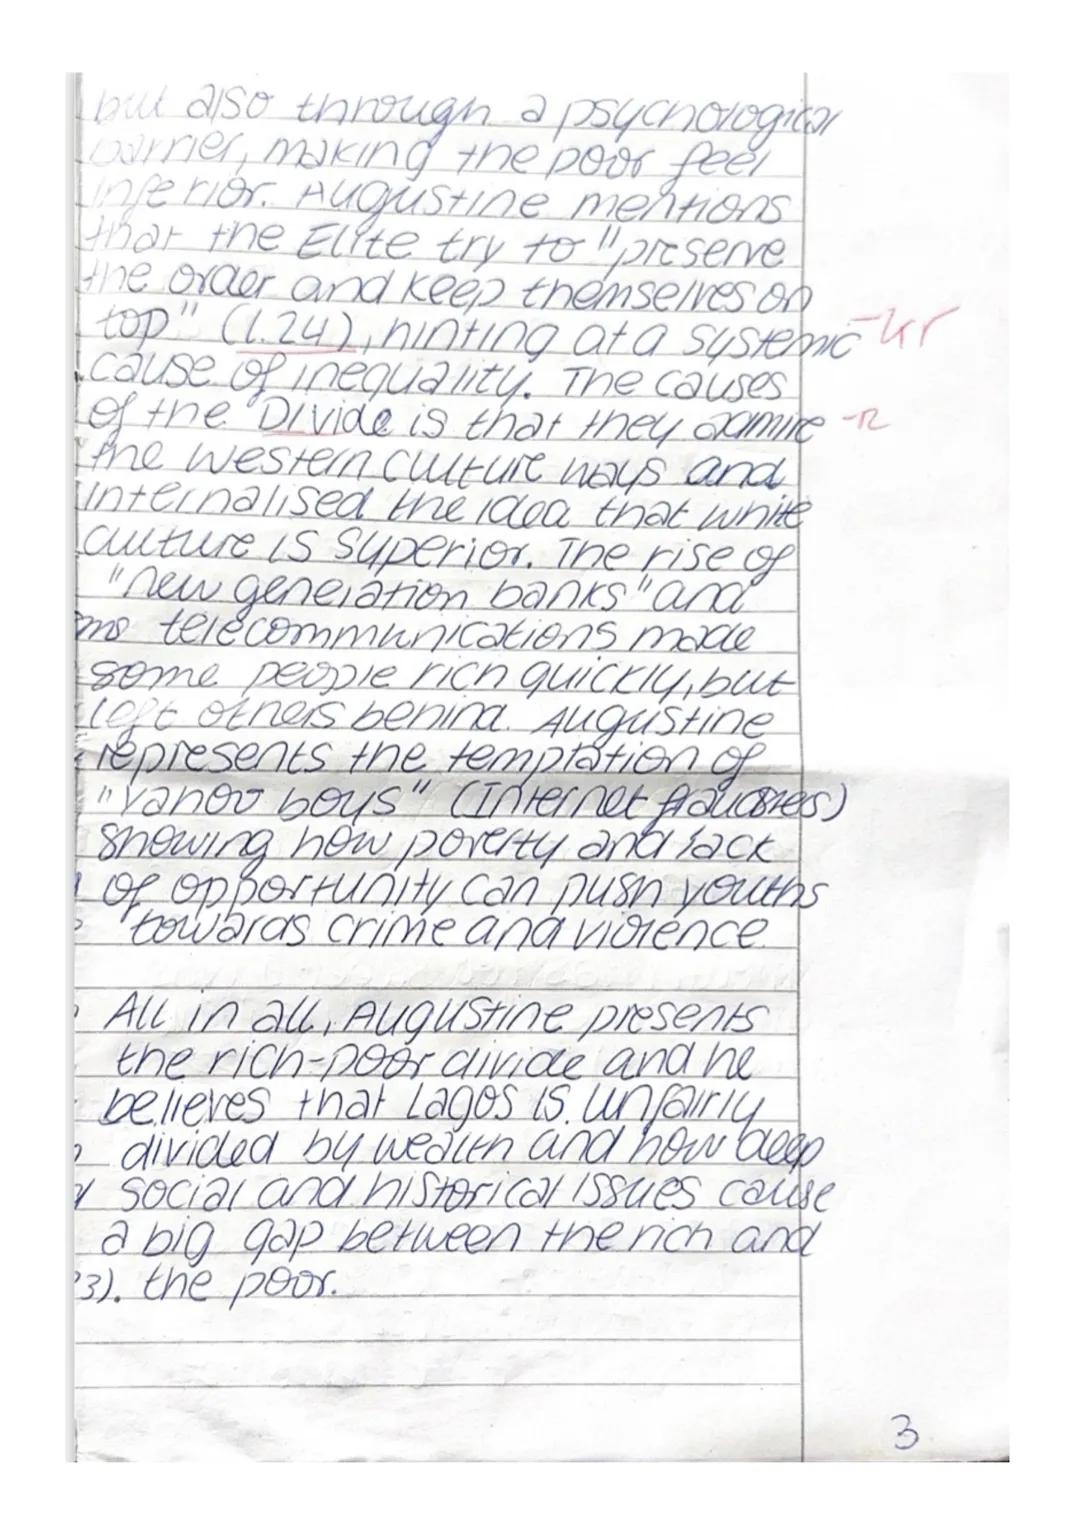 but also through a psychological
barrier, making the poor feel
inferior. Augustine mentions
that the Elite try to "preserve
the order and keep themselves on
top" (l.24), hinting at a systemic
cause of inequality. The causes
of the Divide is that they admire -R
the western culture ways and
internalised the idea that white
culture is superior. The rise of
"new generation banks" and
telecommunications made
some people rich quickly, but
left others behind. Augustine
represents the temptation of
"Yahoo boys" (Internet fraudsters)
showing how poverty and lack
of opportunity can push youths
towards crime and violence.
All in all, Augustine presents
the rich-poor divide and he
believes that Lagos is unfairly
divided by wealth and how deep
social and historical issues cause
a big gap between the rich and
3). the poor.
3